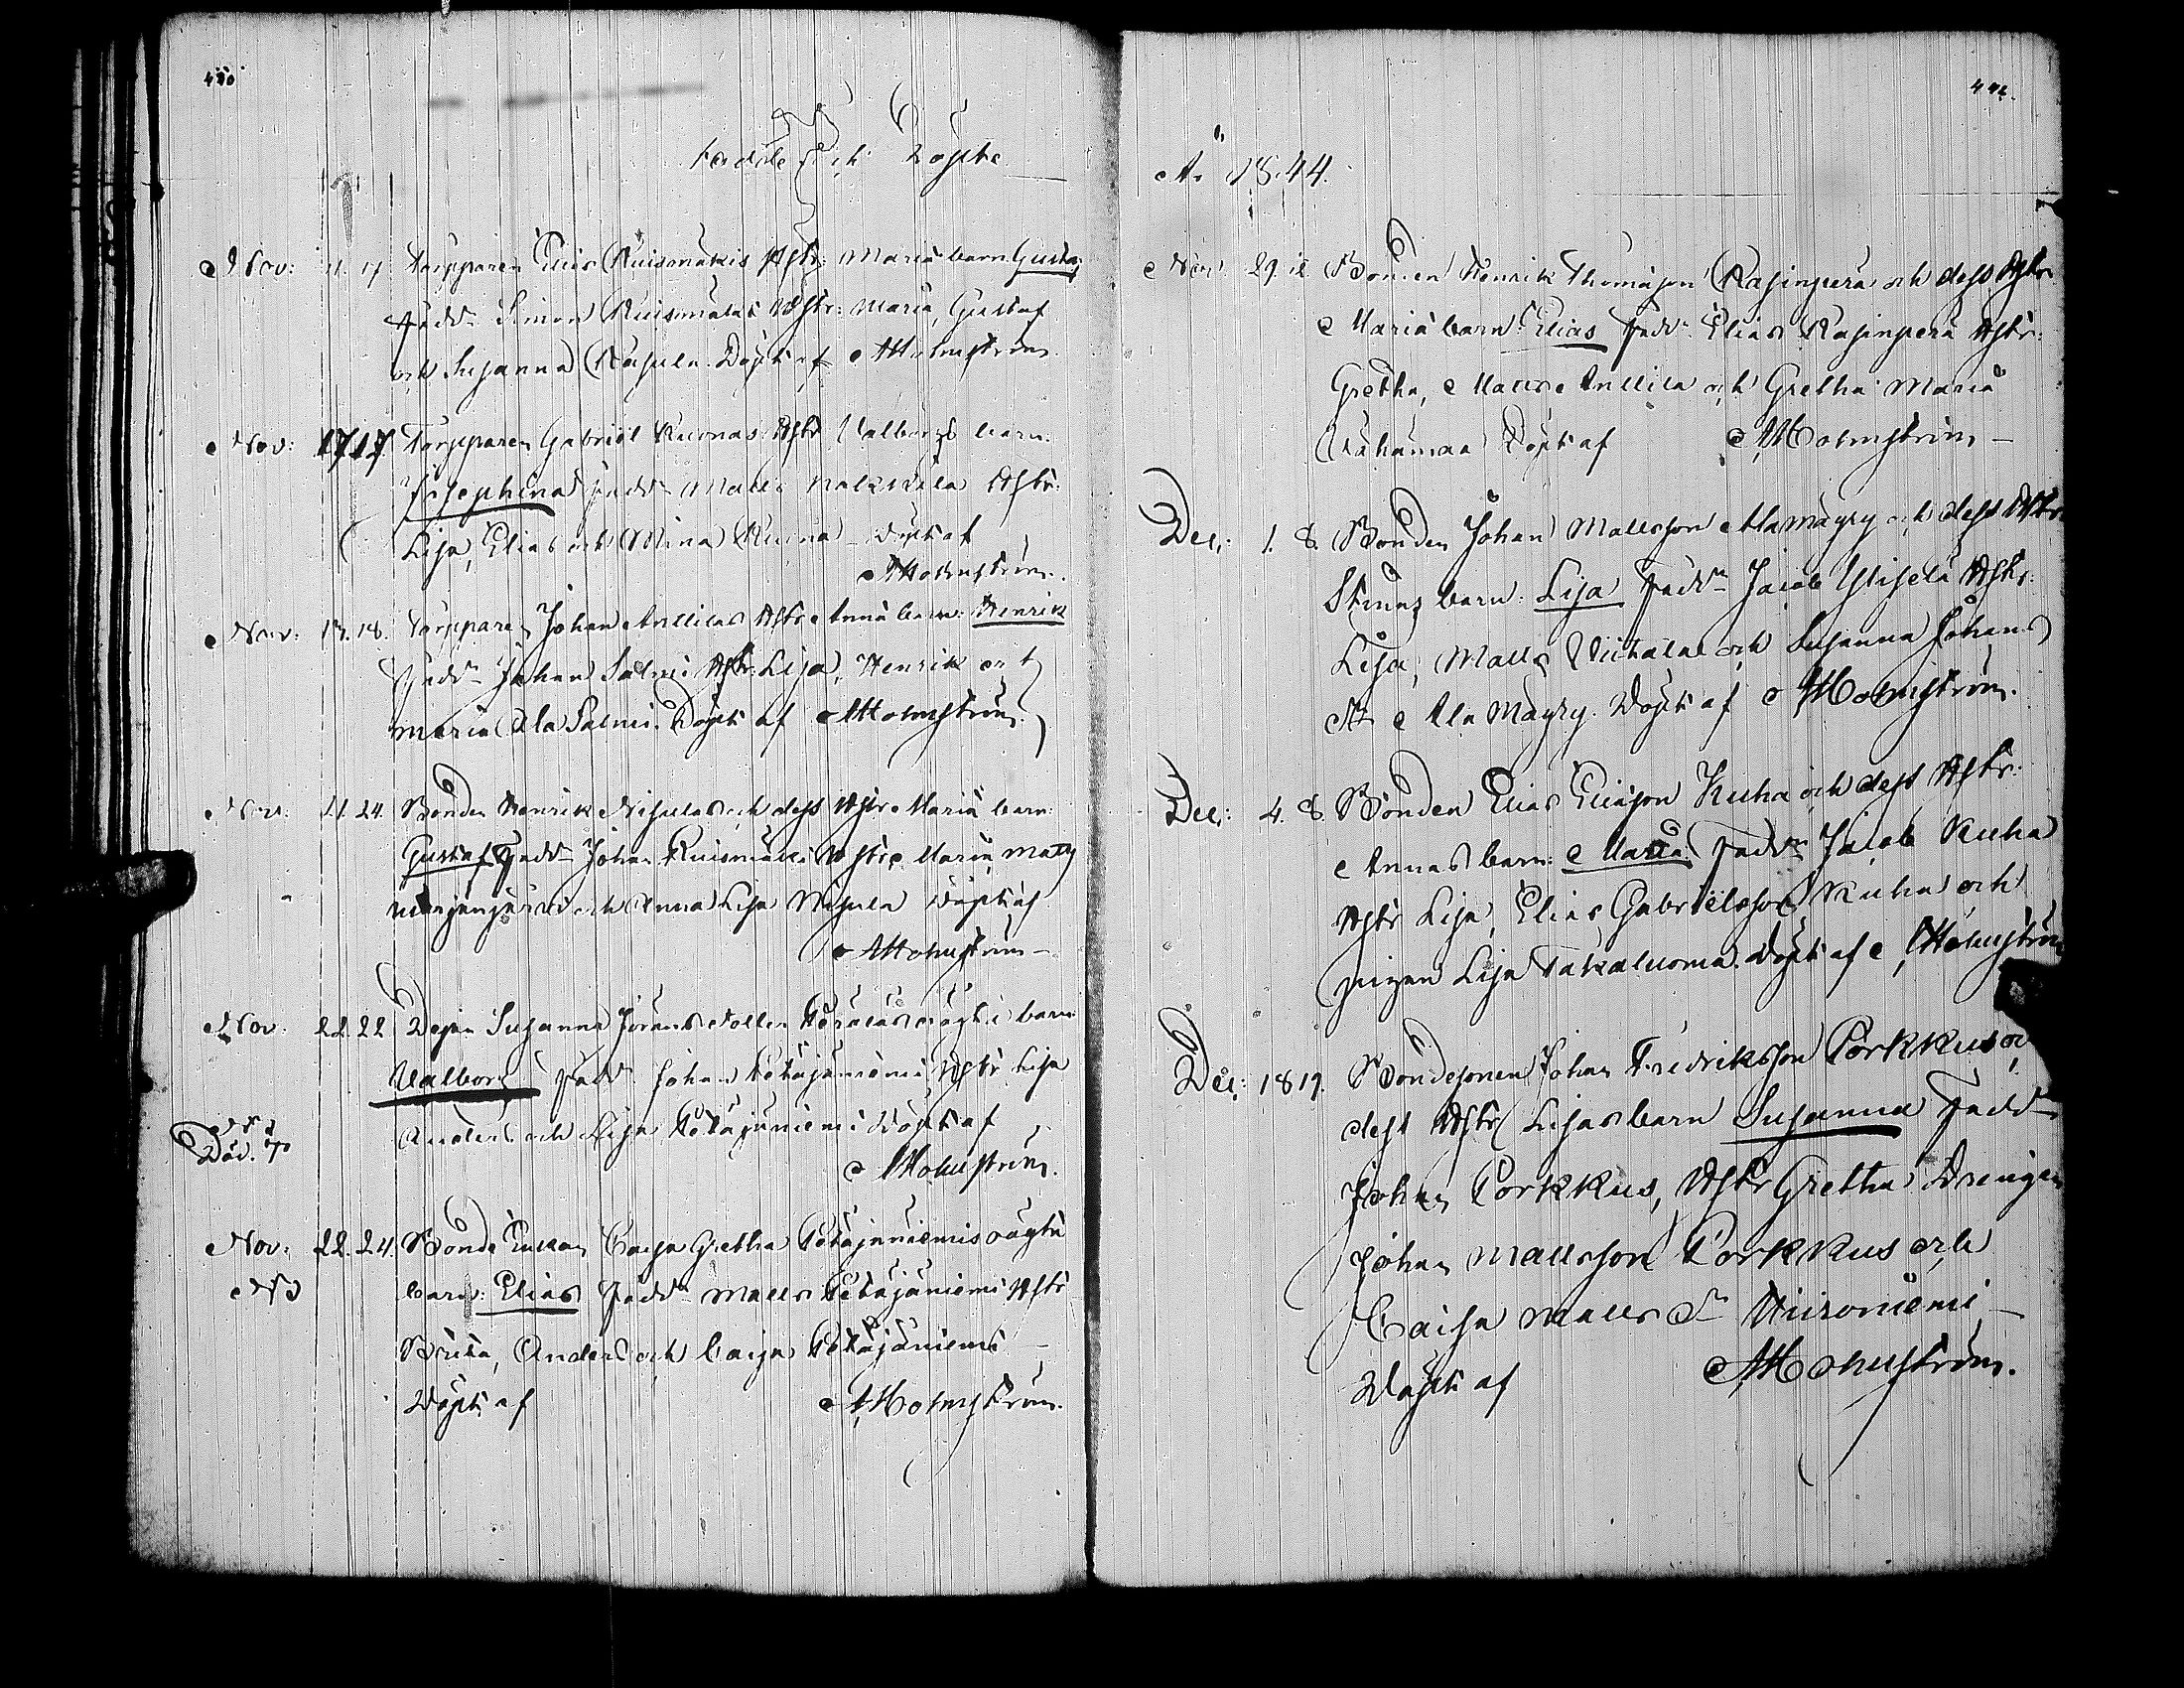 Födde och Döpte
Nov: 17 Torpparen Elias Ruismäkis Hstr: Maria barn Gustaf
Fadd: Simon Ruismäkis Hstr: Maria, Gustaf
och Susanna Döpt af Holmström
Nov: 17 17 Torpparen Gabriel Ruonas Hstr Valborgs barn:
Josephina fadd: Matts Hstr:
Lisa, Elias och Mina Ruona Döpt af
Holmström.
Nov: 18. Torpparen Johan Anttilas Hstr Anna barn: Henrik
Fadd: Johan Salmi Hstr: Lisa, Henrik och
Maria Ala Salmi. Döpt af Holmström.
Nov: 21. 24. Bonden Henrik Nisulas och dess Hstr Maria barn:
Gustaf Fadd: Johan Ruismäki Hstr Maria, Matts
och Anna Lisa Nisula Döpt af
Holmström
Nov: 22. 22 Pigan Susanna barn:
Valborg Fadd: Johan Petäjäniemi Hstr Lisa
Anders och Lisa Petäjäniemi Döpt af
Död. Holmström.
Nov: 22. 24. Bonde Enkan Caisa Gretha Petäjäniemis oägta
barn: Elias Fadd: Matts Petäjäniemi Hstr
Brita, Anders och Caisa Petäjäniemi
Döpt af Holmström.
Ao 1844.
Nov: 29. Bonden Henrik Thomasson Rasinperä och dess Hstr
Maria barn: Elias Fadd: Elias Rasinperä Hstr:
Gretha, Matts Anttila och Gretha Maria
Vähämaa Döpt af Holmström
Dec: 1. 8. Bonden Johan Mattsson Alamäyry och dess Hstr
Stinas barn: Lisa Fadd: Jacob Hstr:
Lisa, Matts Viitala och Susanna Johans
dr Ala Mäyry. Döpt af Holmström.
Dec: 4. 8. Bonden Elias Eliasson Kuha och dess Hstr:
Annas barn: Maria Fadd: Jacob Kuha
Hstr Lisa, Elias Gabrielsson Kuha och
pigan Lisa Takaluoma. Döpt af Holmström
Dec: 18 19. Bondesonen Johan Fredriksson Porkkus och
dess Hstr Lisas barn Susanna Fadd:
Johan Porkkus, Hstr Gretha Drängen
Johan Mattsson Porkkus och
Caisa Matts Dr Niironiemi
Döpt af Holmström.